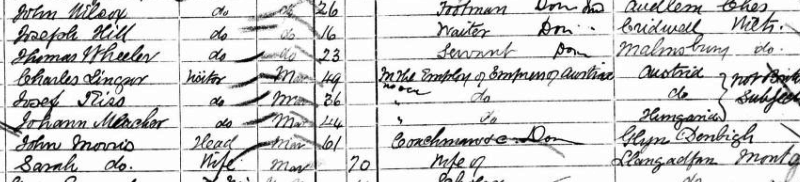 John Wilson do do 26 Footman Dom Audlem Ches
Joseph Hill do do 16 Waiter Dom Cridwell Wilts
Thomas Wheeler do do 23 Servant Dom Malmsbury do.
Charles Linger Visitor Mar 49 In the Employ of Empress of Austria Austria
Josef Riss do Mar 36 " do do Not British Subjects
Johann do Mar 44 " do Hungaria
John Morris Head Mar 61 Coachman &c. Dom Glyn Denbigh
Sarah do. Wife Mar 70 Wife of Llangadfan Montg
do